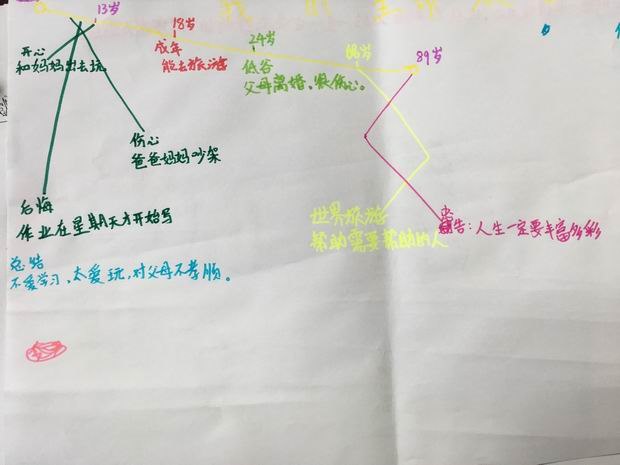 13岁
18岁
成年
能去旅游
24岁
低谷
父母离婚、很伤心。
68岁
89岁
开心
和妈妈出去玩
伤心
爸爸妈妈吵架
后悔
作业在星期天才开始写
世界旅游
帮助需要帮助的人
告:人生一定要丰富多彩
总结
不爱学习,太爱玩,对父母不孝顺。